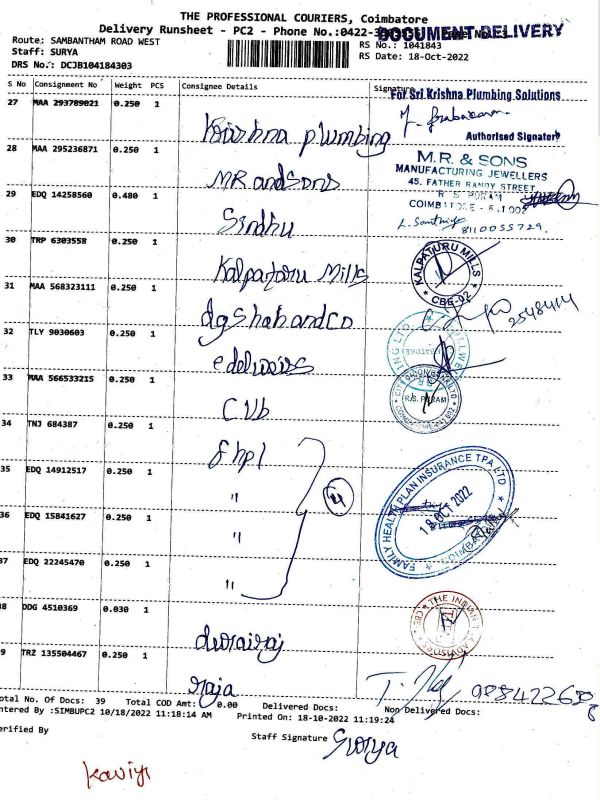 THE PROFESSIONAL COURIERS, Coimbatore
Delivery Runsheet - PC2 - Phone No.:0422-
DOCUMENT DELIVERY
Route: SAMBANTHAM ROAD WEST
RS No.: 1041843
Staff: SURYA
RS Date: 18-Oct-2022
DRS No.: DCJB104184303
S No Consignment No Weight PCS Consignee Details Signature
For Sri Krishna Plumbing Solutions
27 MAA 293789021 0.250 1 Krishna plumbing
Authorised Signatory
28 MAA 295236871 0.250 1 MR and Sons
M.R. & SONS
MANUFACTURING JEWELLERS
45, FATHER RANDY STREET
R S PURAM
COIMBATORE - 641 002
29 EDQ 14258560 0.480 1 Sindhu
8110055729
30 TRP 6303558 0.250 1 Kalpataru Mills
KALPATURU MILLS
CBE-02
31 MAA 568323111 0.250 1 dg shah and co
2548414
32 TLY 9030603 0.250 1 edelweiss
33 MAA 566533215 0.250 1 CVb
CITY UNION BANK LTD
R.S. PURAM
COIMBATORE-641 002
34 TNJ 684387 0.250 1 fhpl
35 EDQ 14912517 0.250 1 "
4
FAMILY HEALTH PLAN INSURANCE TPA LTD
18 OCT 2022
COIMBATORE
36 EDQ 15841627 0.250 1 "
37 EDQ 22245470 0.250 1 "
38 DDG 4510369 0.030 1 durairaj
39 TRZ 135504467 0.250 1 raja
Total No. Of Docs: 39 Total COD Amt: 0.00 Delivered Docs: Non Delivered Docs:
Entered By :SIMBUPC2 10/18/2022 11:18:14 AM Printed On: 18-10-2022 11:19:24
Verified By
Staff Signature Surya
Kaviya